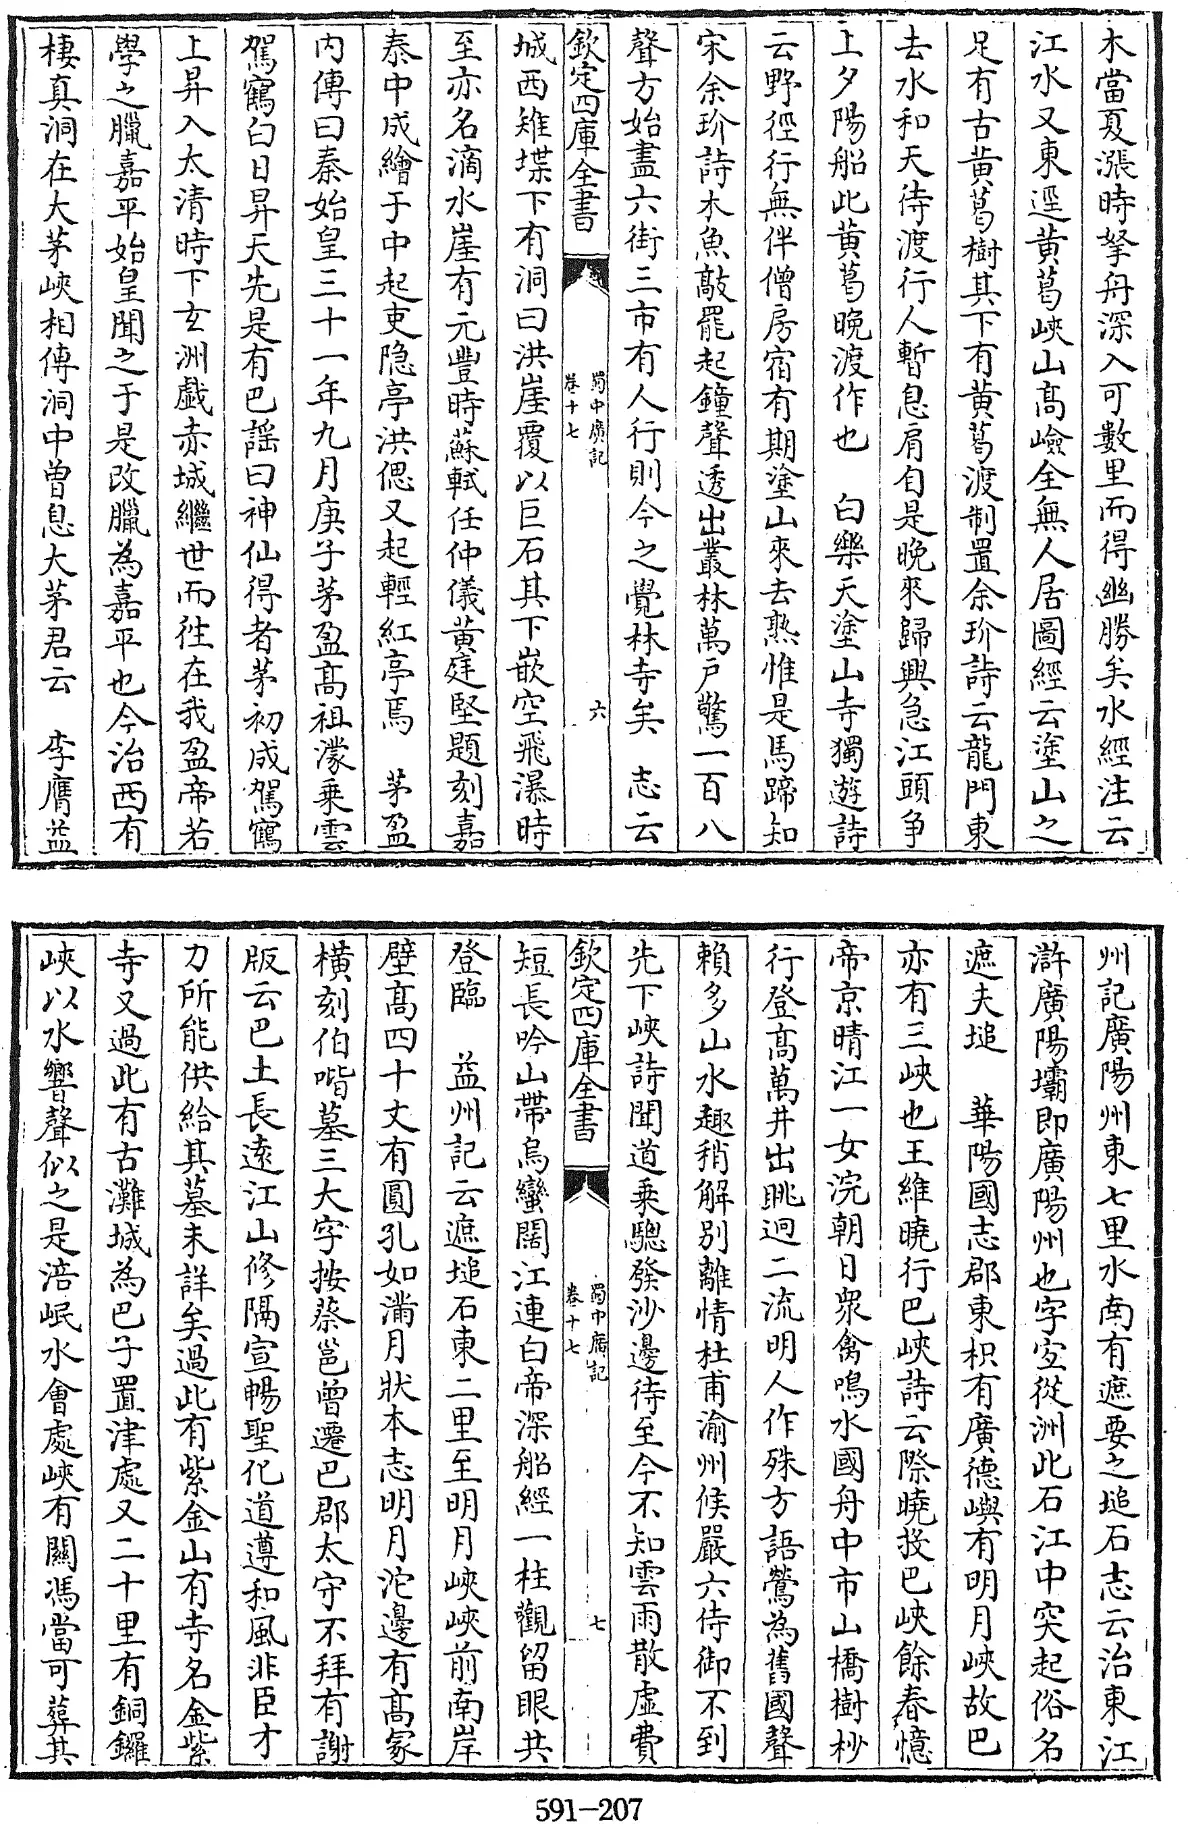 木當夏漲時拏舟深入可數里而得幽勝矣水經注云
江水又東逕黄葛峽山高嶮全無人居圖經云塗山之
足有古黄葛樹其下有黄葛渡制置余玠詩云龍門東
去水和天待渡行人暫息肩自是晚來歸興急江頭争
上夕陽船此黄葛晚渡作也　白樂天塗山寺獨遊詩
云野徑行無伴僧房宿有期塗山來去熟惟是馬蹄知
宋余玠詩木魚敲罷起鐘聲透出叢林萬戸驚一百八
聲方始盡六街三市有人行則今之覺林寺矣　志云
欽定四庫全書
蜀中廣記
卷十七
六
城西雉堞下有洞曰洪崖覆以巨石其下嵌空飛瀑時
至亦名滴水崖有元豐時蘇軾任仲儀黄庭堅題刻嘉
泰中成繪于中起吏隐亭洪偲又起輕紅亭焉　茅盈
内傳曰秦始皇三十一年九月庚子茅盈高祖濛乗雲
駕鶴白日昇天先是有巴謡曰神仙得者茅初成駕鶴
上昇入太清時下玄洲戲赤城繼世而往在我盈帝若
學之臘嘉平始皇聞之于是改臘為嘉平也今治西有
棲真洞在大茅峽相傳洞中曽息大茅君云　李膺益
州記廣陽州東七里水南有遮要之堆石志云治東江
滸廣陽壩即廣陽州也字宜從洲此石江中突起俗名
遮夫堆　華陽國志郡東枳有廣德嶼有明月峽故巴
亦有三峽也王維曉行巴峽詩云際曉投巴峽餘春憶
帝京晴江一女浣朝日衆禽鳴水國舟中市山橋樹杪
行登高萬井出眺迥二流明人作殊方語鶯為舊國聲
賴多山水趣稍解别離情杜甫渝州候嚴六侍御不到
先下峽詩聞道乗驄發沙邊待至今不知雲雨散虚費
欽定四庫全書
蜀中廣記
卷十七
七
短長吟山帶烏蠻闊江連白帝深船經一柱觀留眼共
登臨　益州記云遮堆石東二里至明月峽峽前南岸
壁高四十丈有圓孔如滿月狀本志明月沱邊有高冢
横刻伯喈墓三大字按蔡邕曽遷巴郡太守不拜有謝
版云巴土長逺江山修隔宣暢聖化道遵和風非臣才
力所能供給其墓未詳矣過此有紫金山有寺名金紫
寺又過此有古灘城為巴子置津處又二十里有銅鑼
峽以水響聲似之是涪岷水會處峽有關馮當可葬其
591-207